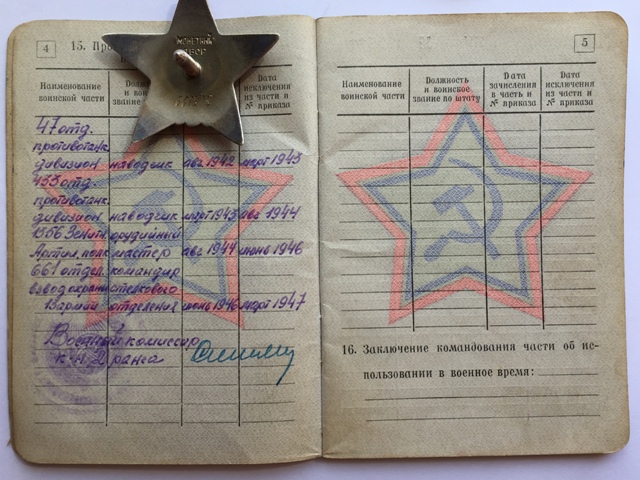 4
15. Про
МОНЕТНЫЙ
ДВОР
Наименование
воинской части
Должность
и во
звание
Дата
исключения
из части и
№ приказа
47 отд.
противотанк.
дивизион наводчик авг 1942 март 1943
433 отд.
противотанк.
дивизион наводчик март 1943 авг 1944
1566 Зенитн. орудийный
Артил. полк мастер авг 1944 июнь 1946
661 отдел. командир
взвод охраны стрелкового
13 армии отделения июнь 1946 март 1947
Военный комиссар
ранга
5
Наименование
воинской части
Должность
и воинское
звание по штату
Дата
зачисления
в часть и
№ приказа
Дата
исключения
из части и
№ приказа
16. Заключение командования части об ис-
пользовании в военное время: